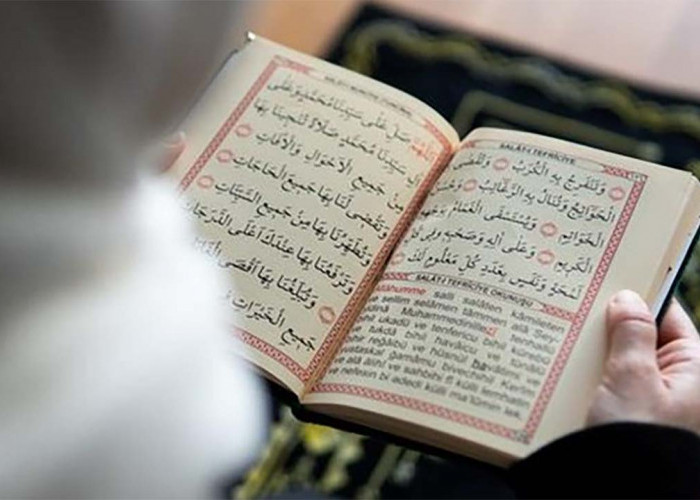 SALÂT-I MÜNCİYE
اَللّٰهُمَّ صَلِّ عَلٰى سَيِّدِنَا مُحَمَّدٍ وَعَلٰى
اٰلِ سَيِّدِنَا مُحَمَّدٍ صَلَاةً تُنْجِينَا بِهَا
مِنْ جَمِيعِ الْاَهْوَالِ وَالْاٰفَاتِ
وَتَقْضِى لَنَا بِهَا جَمِيعَ الْحَاجَاتِ
وَتُطَهِّرُنَا بِهَا مِنْ جَمِيعِ السَّيِّئَاتِ
وَتَرْفَعُنَا بِهَا عِنْدَكَ اَعْلَى الدَّرَجَاتِ
وَتُبَلِّغُنَا بِهَا اَقْصَى
جَمِيعِ الْخَيْرَاتِ
SALÂT-I TEFRİCİYE
وَتَنْفَرِجُ بِهِ الْكُرَبُ وَتُقْضَى
الْحَوَائِجُ وَتُنَالُ بِهِ الرَّغَائِبُ وَحُسْنُ
الْخَوَاتِمِ وَيُسْتَسْقَى الْغَمَامُ بِوَجْهِهِ
الْكَرِيمِ وَعَلٰى اٰلِهِ وَصَحْبِهِ فِى كُلِّ
لَمْحَةٍ وَنَفَسٍ بِعَدَدِ كُلِّ مَعْلُومٍ لَكَ
SALÂT-I TEFRİCİYE OKUNUŞU
salli salâten kâmileten
ve sellim selâmen tâmmen alâ Sey-
Muhammedinillezi
ukadü ve tenfericu bihil kürebü
ve tukdâ bihil havâicu ve tünâlü
bihir reğâibü ve hüsnül havâtimi ve
yustaskal ğamâmu bivechihil Kerîm
ve alâ âlihî ve sahbihî fî külli lemhatin
ve nefesin bi adedi külli ma'lûmin lek.